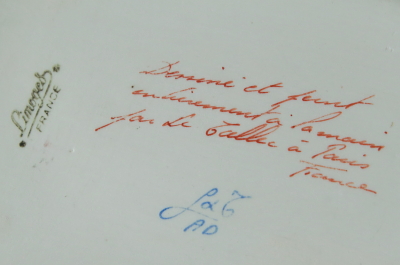 Limoges
FRANCE
Dessiné et peint
entièrement à la main
par Le Tallec à Paris
France
LT
AD